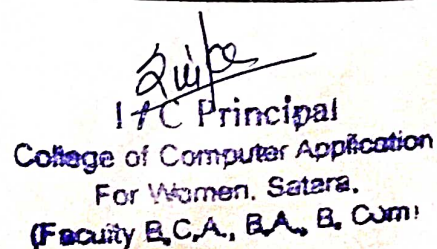 I/C Principal
College of Computer Application
For Women. Satara.
(Faculty B.C.A., B.A., B. Com)